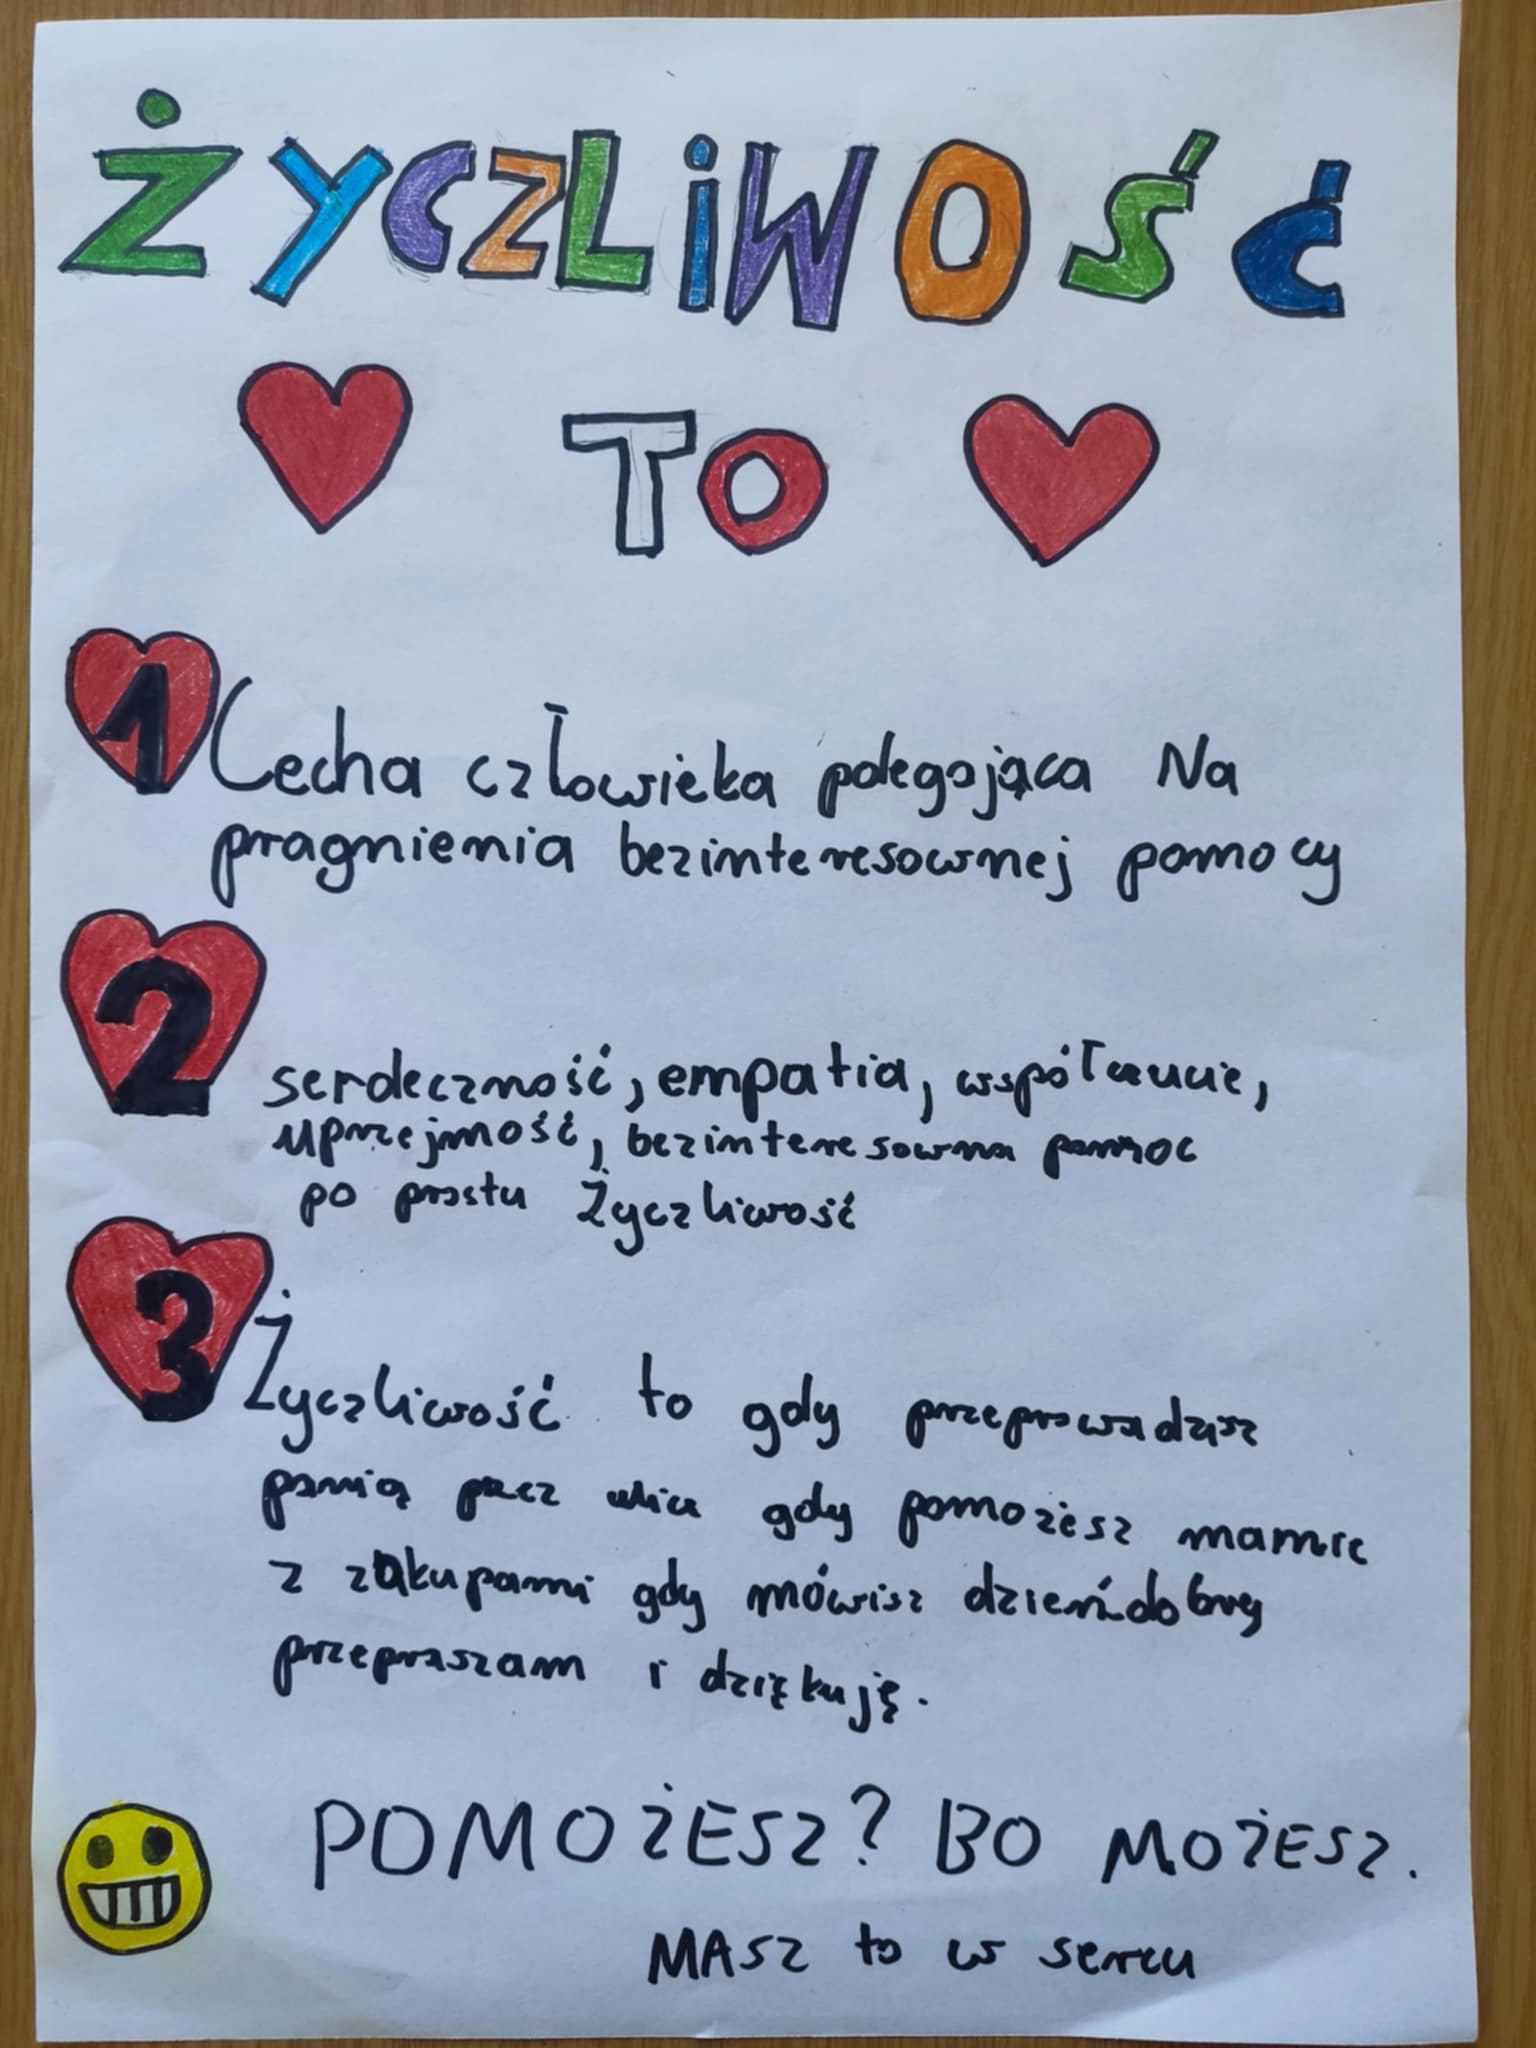 ŻYCZLiWOŚĆ
TO
1 Cecha człowieka polegająca Na
pragnienia bezinteresownej pomocy
2
serdeczność, empatia, współczucie,
uprzejmość, bezinteresowna pomoc
po prostu Życzliwość
3 Życzliwość to gdy przeprowadzisz
panią przez ulice gdy pomożesz mamie
z zakupami gdy mówisz dzień dobry
przepraszam i dziękuję.
POMOŻESZ? BO MOŻESZ.
MASZ to w sercu